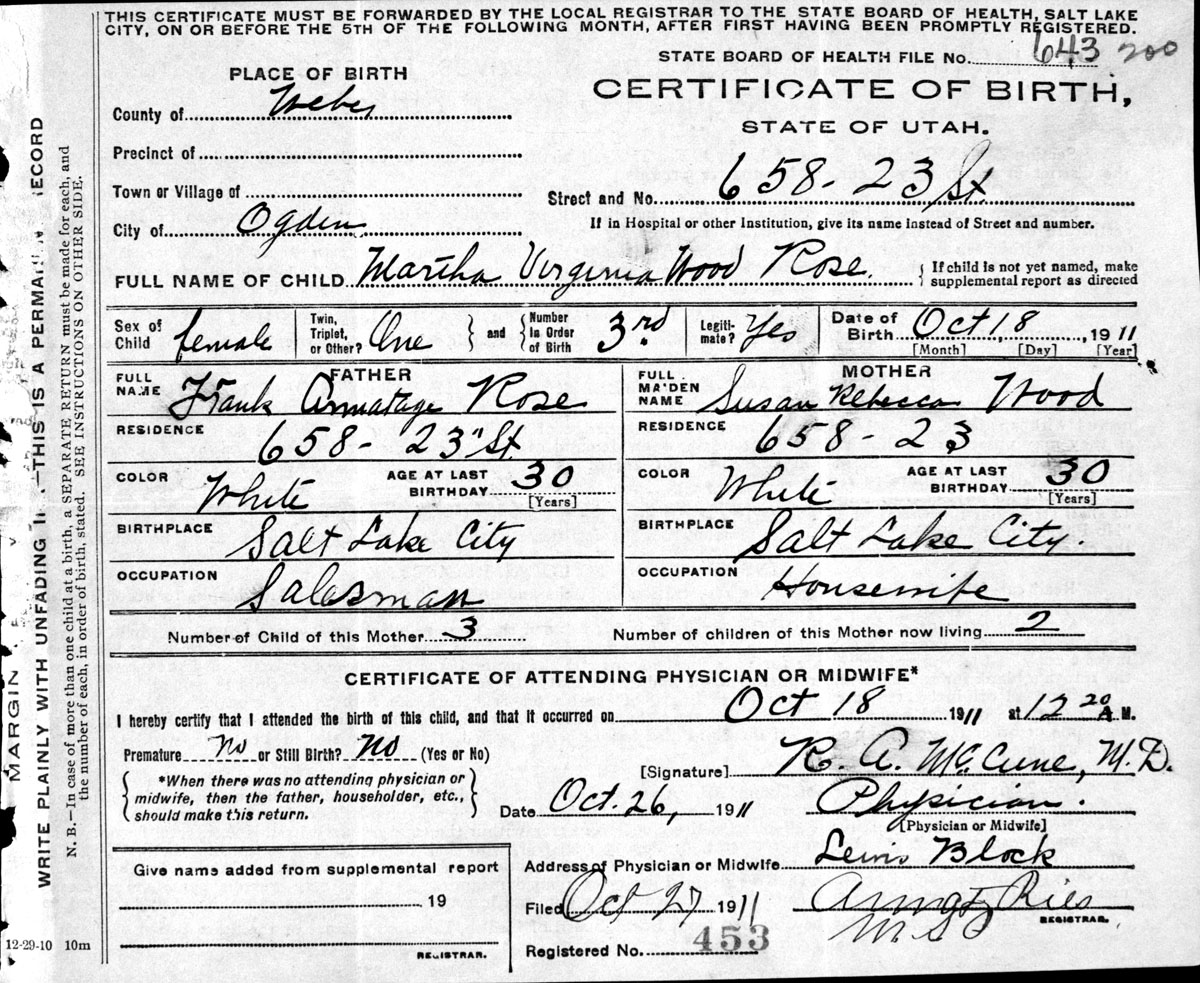 THIS CERTIFICATE MUST BE FORWARDED BY THE LOCAL REGISTRAR TO THE STATE BOARD OF HEALTH, SALT LAKE
CITY, ON OR BEFORE THE 5TH OF THE FOLLOWING MONTH, AFTER FIRST HAVING BEEN PROMPTLY REGISTERED.
STATE BOARD OF HEALTH FILE No. 643 200
PLACE OF BIRTH
CERTIFICATE OF BIRTH,
STATE OF UTAH.
County of Weber
Precinct of
Town or Village of
Street and No. 658-23 St
City of Ogden
If in Hospital or other Institution, give its name instead of Street and number.
FULL NAME OF CHILD Martha Virginia Wood Rose { If child is not yet named, make
supplemental report as directed
Sex of Child female Twin, Triplet, or Other? One } and { Number In Order of Birth 3rd Legiti-mate? Yes Date of Birth Oct 18, 1911
[Month] [Day] [Year]
FATHER MOTHER
FULL NAME Frank Armatage Rose FULL MAIDEN NAME Susan Rebecca Wood
RESIDENCE 658-23" St RESIDENCE 658-23
COLOR White AGE AT LAST BIRTHDAY 30 [Years] COLOR White AGE AT LAST BIRTHDAY 30 [Years]
BIRTHPLACE Salt Lake City BIRTHPLACE Salt Lake City.
OCCUPATION Salesman OCCUPATION Housewife
Number of Child of this Mother 3 Number of children of this Mother now living 2
CERTIFICATE OF ATTENDING PHYSICIAN OR MIDWIFE*
I hereby certify that I attended the birth of this child, and that it occurred on Oct 18 1911 at 12 20 A. M.
Premature No or Still Birth? No (Yes or No)
[Signature] R. A. McCune, M.D.
{ *When there was no attending physician or
midwife, then the father, householder, etc.,
should make this return. }
Date Oct. 26, 1911 Physician.
[Physician or Midwife]
Give name added from supplemental report
19
REGISTRAR.
Address of Physician or Midwife Lewis Block
Filed Oct 27 1911
REGISTRAR.
Registered No. 453
12-29-10 10m
MARGIN
WRITE PLAINLY WITH UNFADING —THIS IS A RECORD
N. B.—In case of more than one child at a birth, a SEPARATE RETURN must be made for each, and
the number of each, in order of birth, stated. SEE INSTRUCTIONS ON OTHER SIDE.